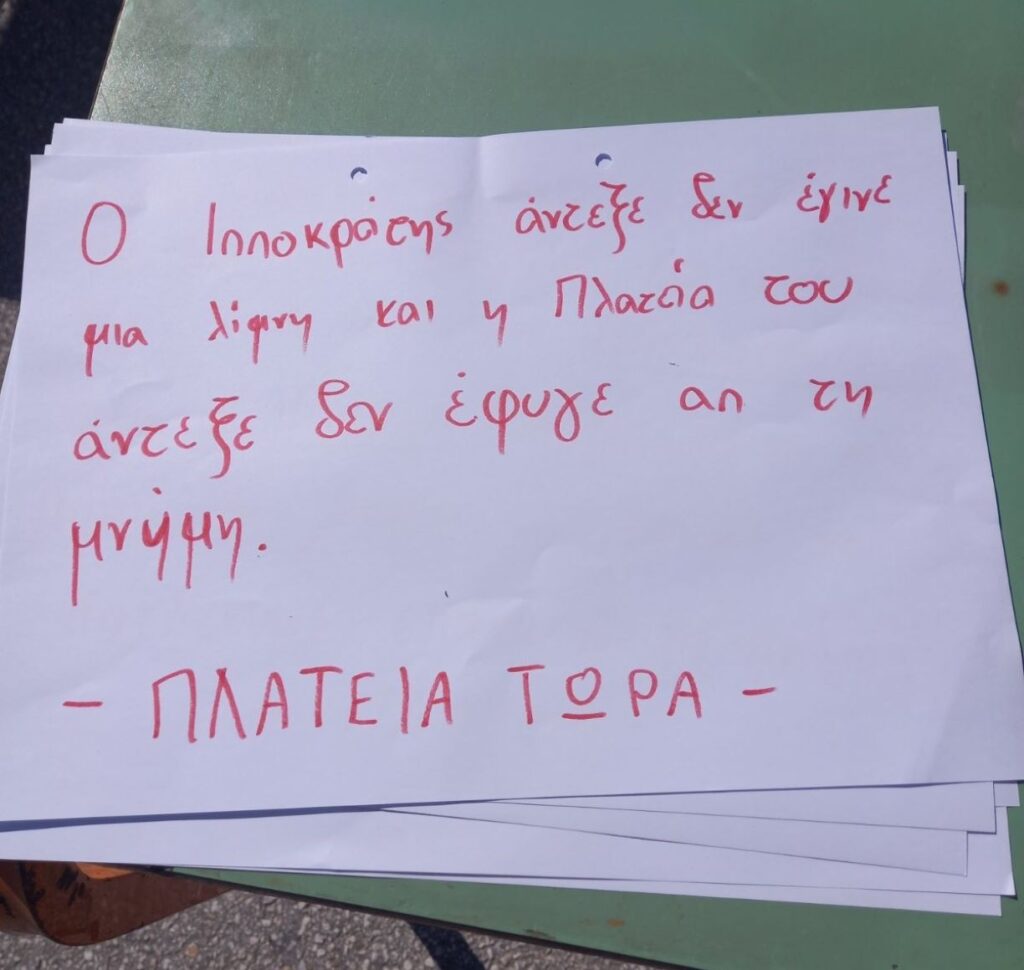 Ο Ιπποκράτης άντεξε δεν έγινε
μια λίμνη και η Πλατεία του
άντεξε δεν έφυγε απ τη
μνήμη.
- ΠΛΑΤΕΙΑ ΤΩΡΑ -